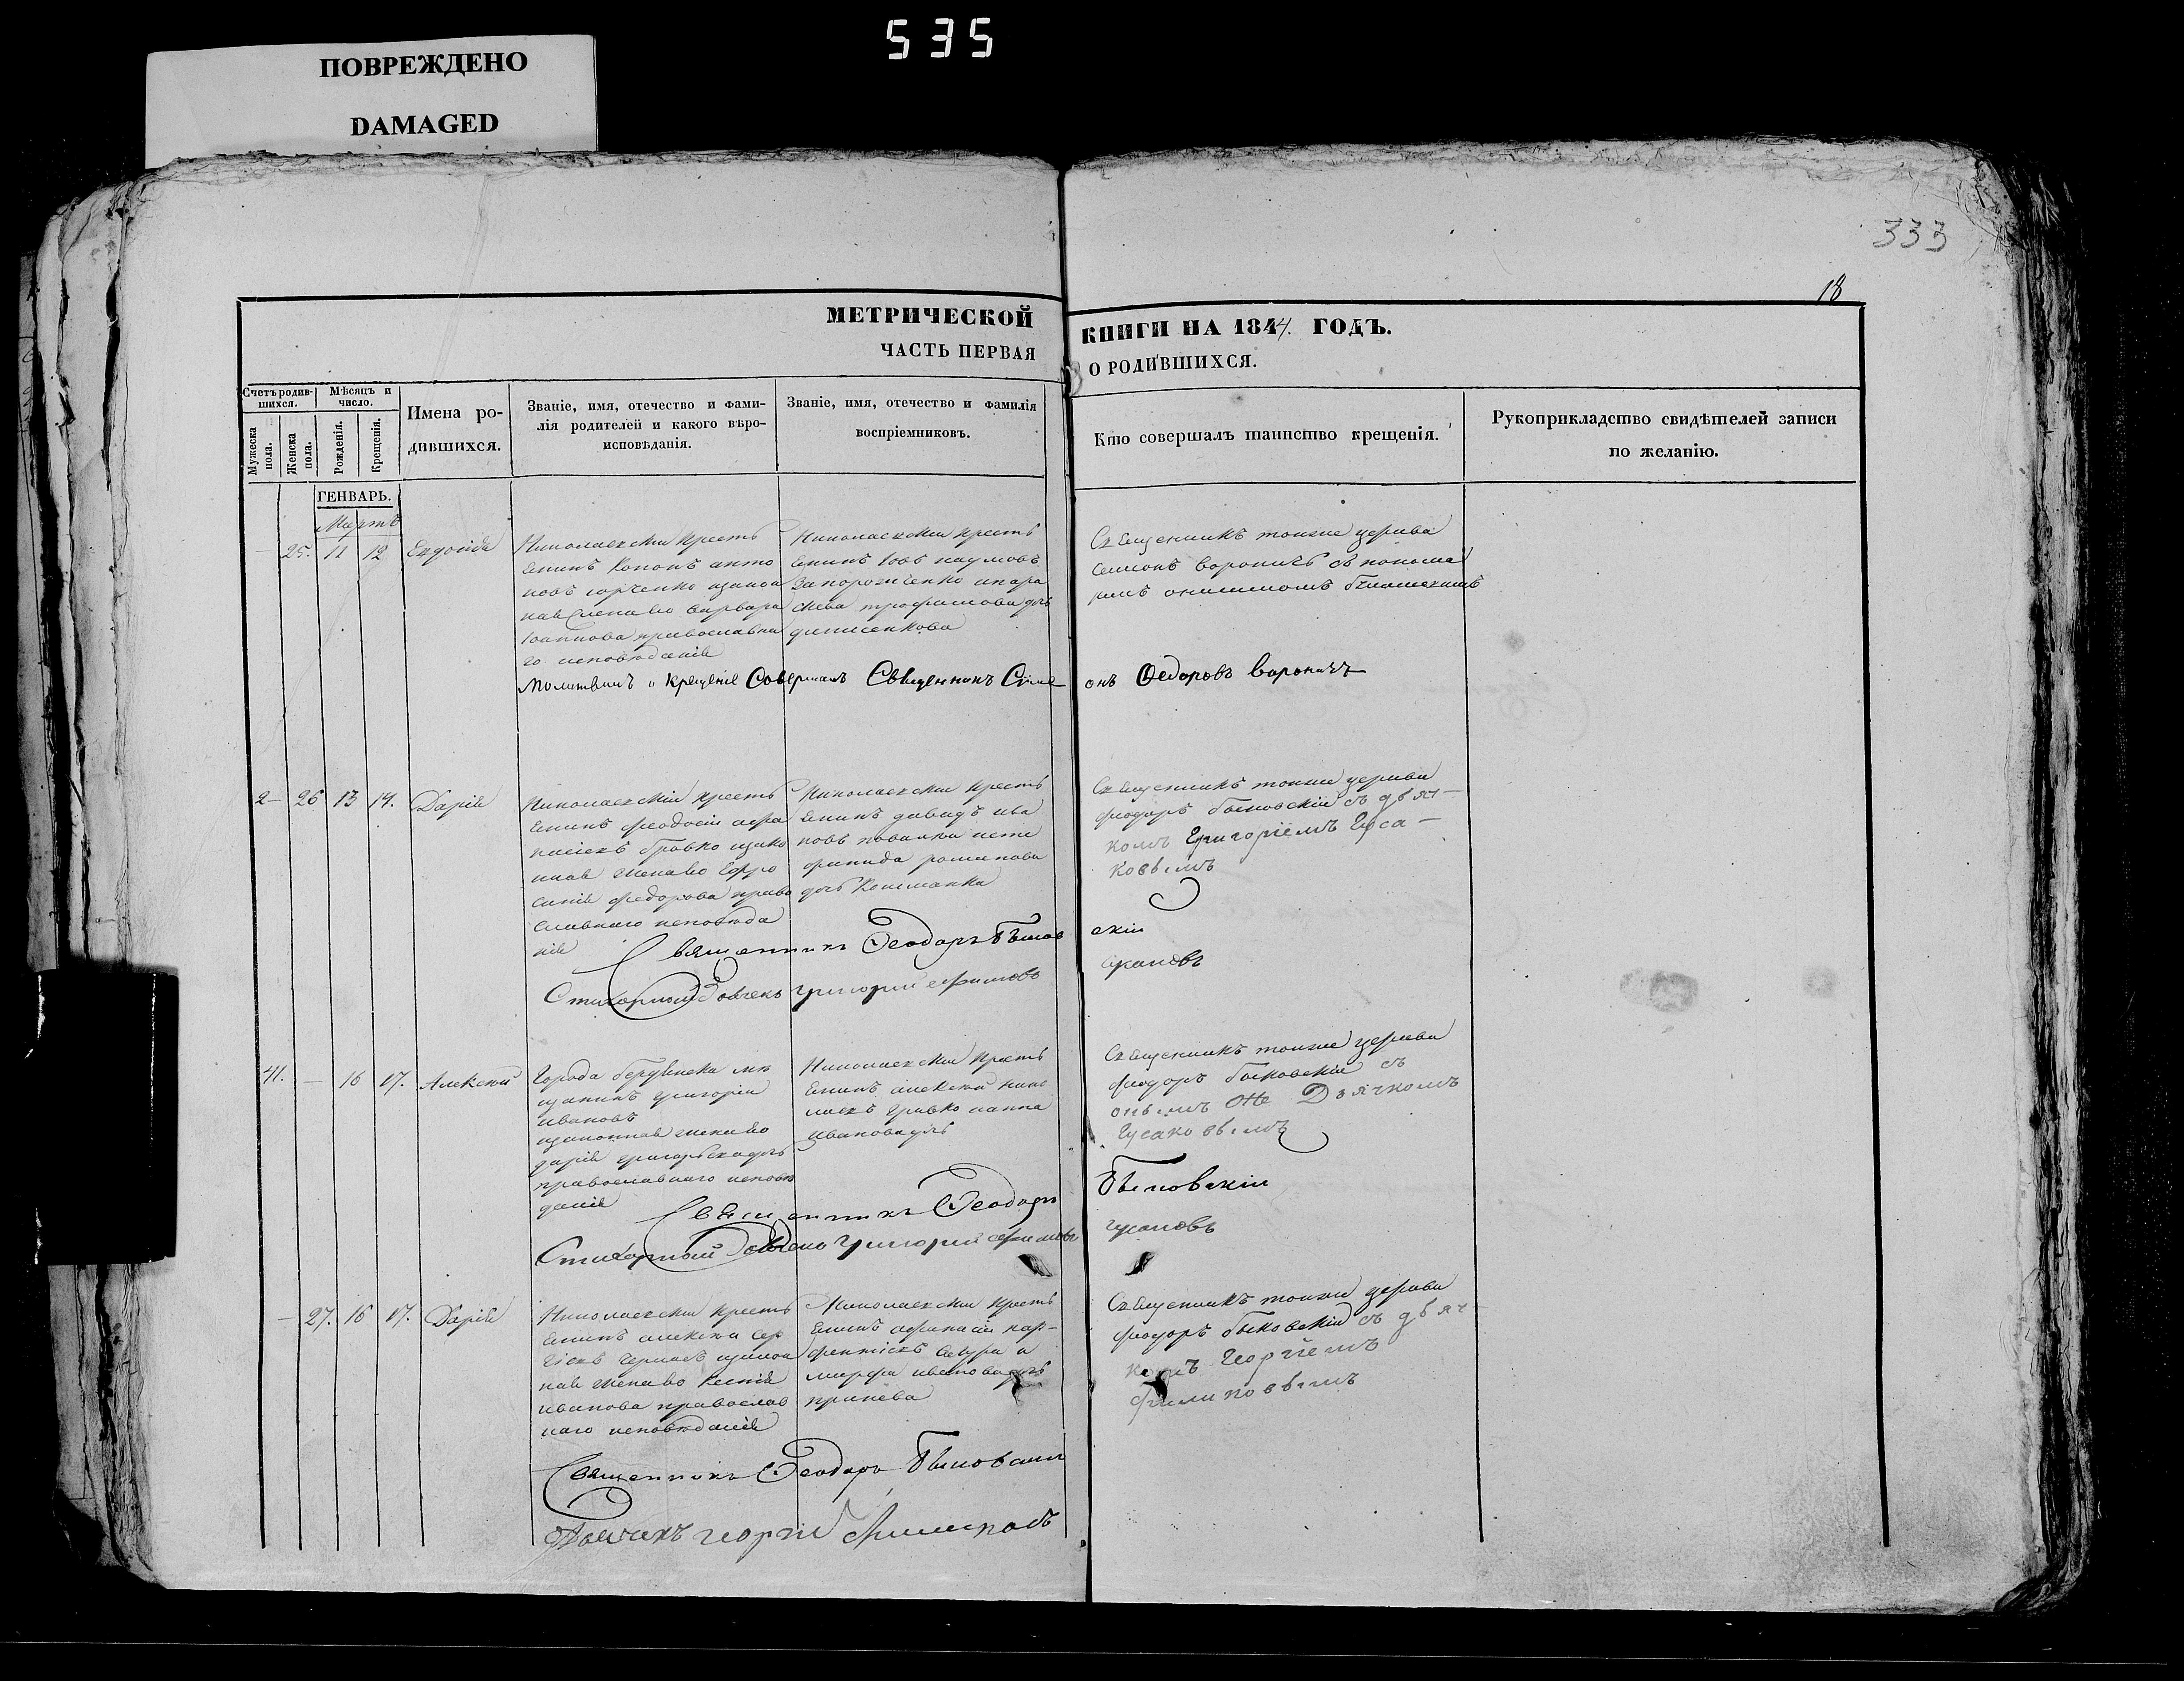 535
ПОВРЕЖДЕНО
DAMAGED
333
18
МЕТРИЧЕСКОЙ
КНИГИ НА 1844. ГОДЪ.
ЧАСТЬ ПЕРВАЯ
О РОДИВШИХСЯ.
Счетъ родив-
шихся.
Мѣсяцъ и
число.
Мужеска
пола.
Женска
пола.
Рожденія.
Крещенія.
Имена ро-
дившихся.
Званіе, имя, отечество и фами-
лія родителей и какого вѣро-
исповѣданія.
Званіе, имя, отечество и фамилія
воспріемниковъ.
Кто совершалъ таинство крещенія.
Рукоприкладство свидѣтелей записи
по желанію.
ГЕНВАРЬ.
Мартъ
25. 11 12 Евдокіа
Николаевскій кресть
янинъ Кононъ анто
новъ юрченко изакон
ная жена его варвара
Іоаннова православна
го исповѣданія
Николаевскій кресть
янинъ Іовъ наумовъ
Запорожченко ипара
скева трофимова дочь
денисенкова
Священникъ тоиже церкви
симонъ вороничъ съ понома
ремъ онисимомъ
Молитвилъ и крещеніе Совершалъ Священникъ Симе
онъ Федоровъ вароничъ
2 26 13 14. Даріа
Николаевскій кресть
янинъ феодосій афа
насіевъ бровко изако
нная жена его Ефро
синіа федорова право
славнаго исповѣда
ніа
Николаевскій кресть
янинъ давидъ ива
новъ ковалки исте
фанида романова
дочь Кошманка
Священникъ тоиже церкви
феодоръ быковскій съ дьяч-
комъ Григоріемъ Гуса-
ковымъ
Священникъ Феодоръ Быков
скій
Стихарный Дьячекъ григорій ефимовъ
гусаковъ
41. — 16 17. Алексѣй
Города бердянска мѣ
щанинъ григорій
ивановъ
изаконная жена его
даріа григорьева дочь
православнаго исповѣ
даніа
Николаевскій кресть
янинъ алексѣй нико
лаевъ бровко ианна
иванова дочь
Священникъ тоиже церкви
феодоръ быковскій съ
онымъ же Дьячкомъ
Гусаковымъ
Священникъ Феодоръ
Быковскій
Стихарный Дьячекъ григорій ефимовъ
гусаковъ
— 27. 16 17. Даріа
Николаевскій кресть
янинъ алексѣй сер
гіевъ изакон
ная жена его Ксеніа
иванова православ
наго исповѣданіа
Николаевскій кресть
янинъ афанасій пар-
фентіевъ и
марфа иванова дочь
Священникъ тоиже церкви
феодоръ быковскій съ дьяч-
комъ Георгіемъ
филиповымъ
Священникъ Феодоръ Быковскій
Дьячекъ георгій Филиповъ